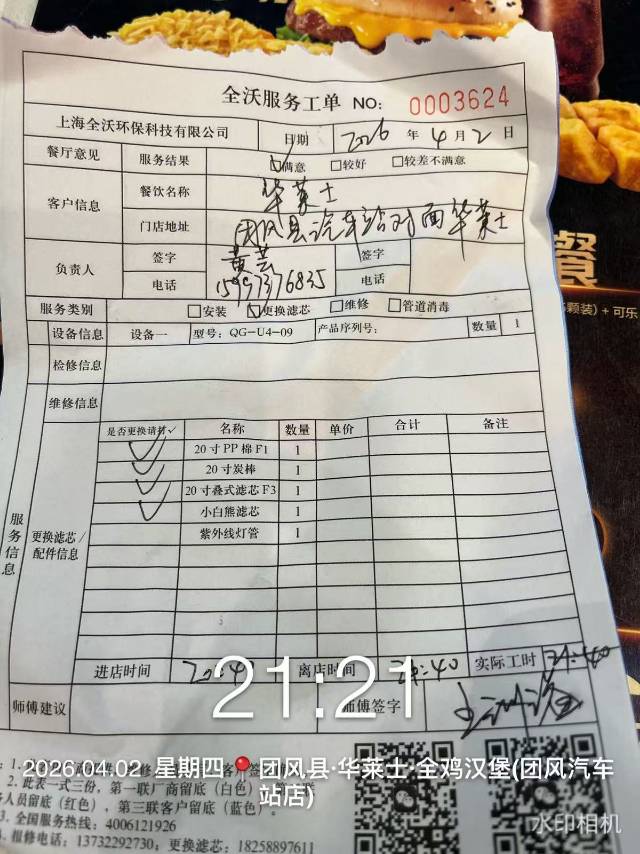 全沃服务工单 NO: 0003624
上海全沃环保科技有限公司 日期 2026 年 4 月 2 日
餐厅意见 服务结果 满意 较好 较差不满意
客户信息 餐饮名称 华莱士
门店地址 团风县汽车站对面华莱士
负责人 签字 黄芸 签字
电话 15997376835 电话
服务类别 安装 更换滤芯 维修 管道消毒
设备信息 设备一 型号: QG-U4-09 产品序列号: 数量 1
检修信息
维修信息
服务信息
更换滤芯/配件信息
是否更换请打✓ 名称 数量 单价 合计 备注
✓ 20寸PP棉F1 1
✓ 20寸炭棒 1
✓ 20寸叠式滤芯F3 1
✓ 小白熊滤芯 1
紫外线灯管 1
进店时间 离店时间 实际工时
师傅建议 师傅签字
21:21
2026.04.02 星期四 团风县·华莱士·全鸡汉堡(团风汽车站店)
2. 此表一式三份，第一联厂商留底（白色）
人员留底（红色），第三联客户留底（蓝色）。
3. 全国服务热线: 4006121926
报修电话: 13732292730; 更换滤芯: 18258897611
水印相机
餐
颗装) + 可乐